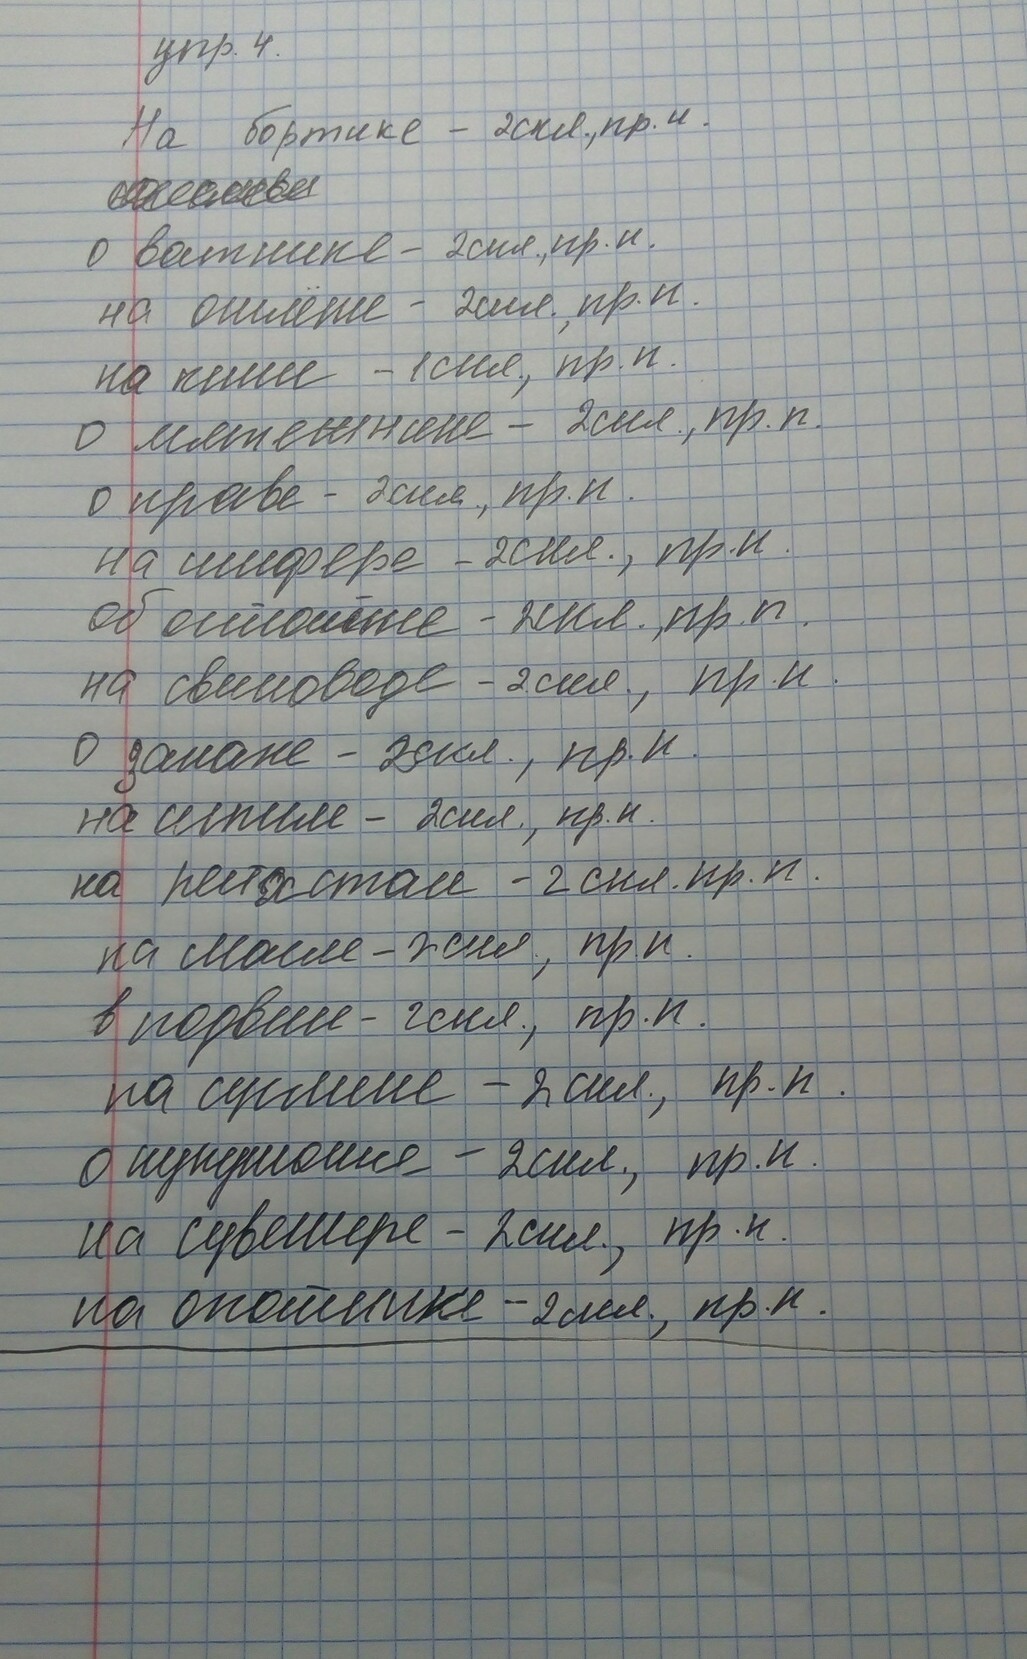 упр. 4.
На бортике - 2скл., пр. п.
о ватнике - 2скл., пр. п.
на отлёте - 2скл., пр. п.
на - 1скл., пр. п.
о мятежнике - 2скл., пр. п.
о праве - 2скл., пр. п.
на шифере - 2скл., пр. п.
об - 2скл., пр. п.
на свиноводе - 2скл., пр. п.
о - 2скл., пр. п.
на - 2скл., пр. п.
на - 2скл. пр. п.
на - 2скл., пр. п.
в - 2скл., пр. п.
на суглинке - 2скл., пр. п.
о - 2скл., пр. п.
на сувенире - 2скл., пр. п.
на охотнике - 2скл., пр. п.